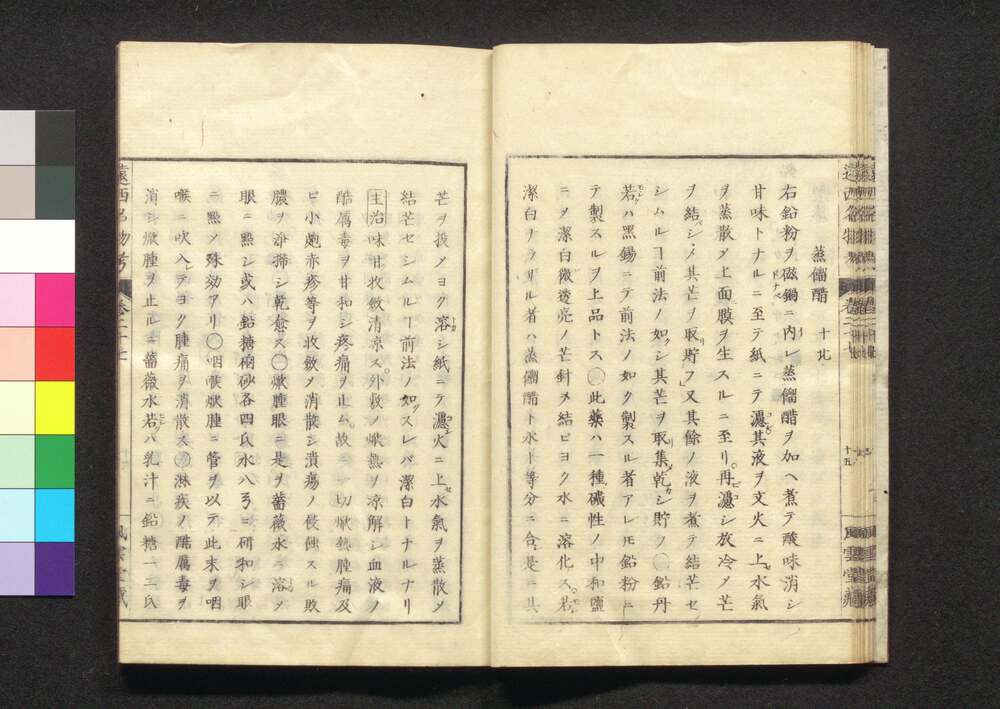 蒸餾醋 十九
右鉛粉ヲ磁鍋ニ内レ蒸餾醋ヲ加ヘ煮テ酸味消シ
甘味トナルニ至テ紙ニテ濾其液ヲ文火ニ上水氣
ヲ蒸散メ上面膜ヲ生スルニ至リ再濾シ放冷メ芒
ヲ結シメ其芒ヲ取貯フ又其餘ノ液ヲ煮テ結芒セ
シムルヿ前法ノ如クシ其芒ヲ取集乾シ貯フ〇鉛丹
若ハ黒錫ニテ前法ノ如ク製スル者アレ𪜈鉛粉ニ
テ製スルヲ上品トス〇此藥ハ一種礆性ノ中和鹽
ニメ潔白微透亮ノ芒針ヲ結ビヨク水ニ溶化ス若
潔白ナラサル者ハ蒸餾醋ト水ト等分ニ合是ニ其
十五
風雲堂藏
芒ヲ投メヨク溶シ紙ニテ濾火ニ上水氣ヲ蒸散メ
結芒セシムルヿ前法ノ如クスレバ潔白トナルナリ
主治味甘收斂清凉ス外敷メ焮熱ヲ凉解シ血液ノ
酷厲毒ヲ甘和シ疼痛ヲ止ム故ニ一切焮熱腫痛及
ヒ小皰赤疹等ヲ收斂メ消散シ潰瘍ノ侵蝕スル敗
膿ヲ淨掃シ乾愈ス〇焮腫眼ニ是ヲ薔薇水ニ溶メ
眼ニ㸃シ或ハ鉛糖硇砂各四氏水八弓ニ研和シ眼
ニ㸃メ殊効アリ〇咽喉焮腫ニ管ヲ以テ此末ヲ咽
喉ニ吹入テヨク腫痛ヲ消散ス〇淋疾ノ酷厲毒ヲ
消シ焮腫ヲ止ルニ薔薇水若ハ乳汁ニ鉛糖一二氏
遠西名物考 卷二十七
風雲堂藏